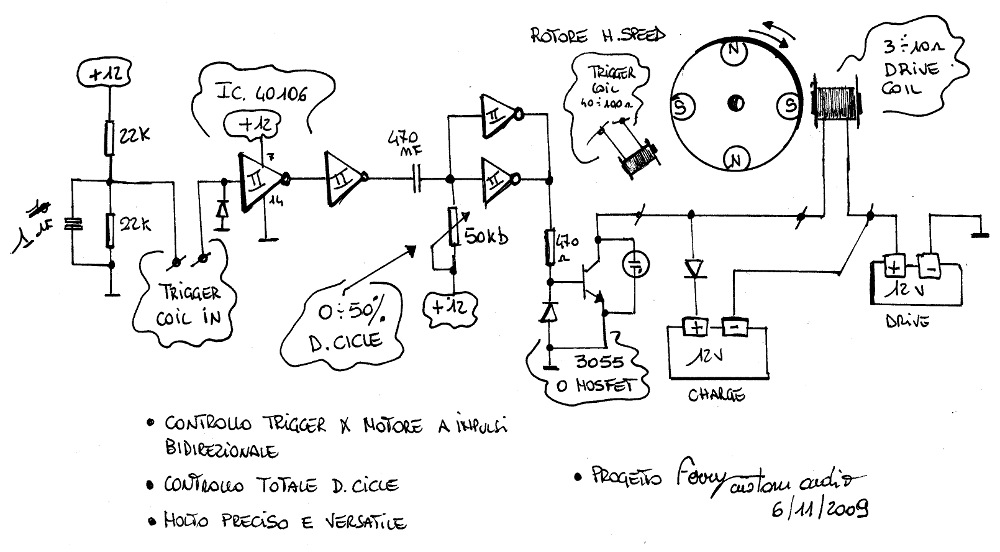 ROTORE H.SPEED
TRIGGER
COIL
40÷100Ω
N
S
S
N
3÷10Ω
DRIVE
COIL
+12
IC. 40106
+12
22K
7
14
470
nF
22K
TRIGGER
COIL IN
50Kb
+12
0÷50%
D.CICLE
470
Ω
3055
O MOSFET
+
-
12V
CHARGE
+
-
12V
DRIVE
• CONTROLLO TRIGGER X MOTORE A IMPULSI
BIDIREZIONALE
• CONTROLLO TOTALE D.CICLE
• MOLTO PRECISO E VERSATILE
• PROGETTO Ferry custom audio
6/11/2009